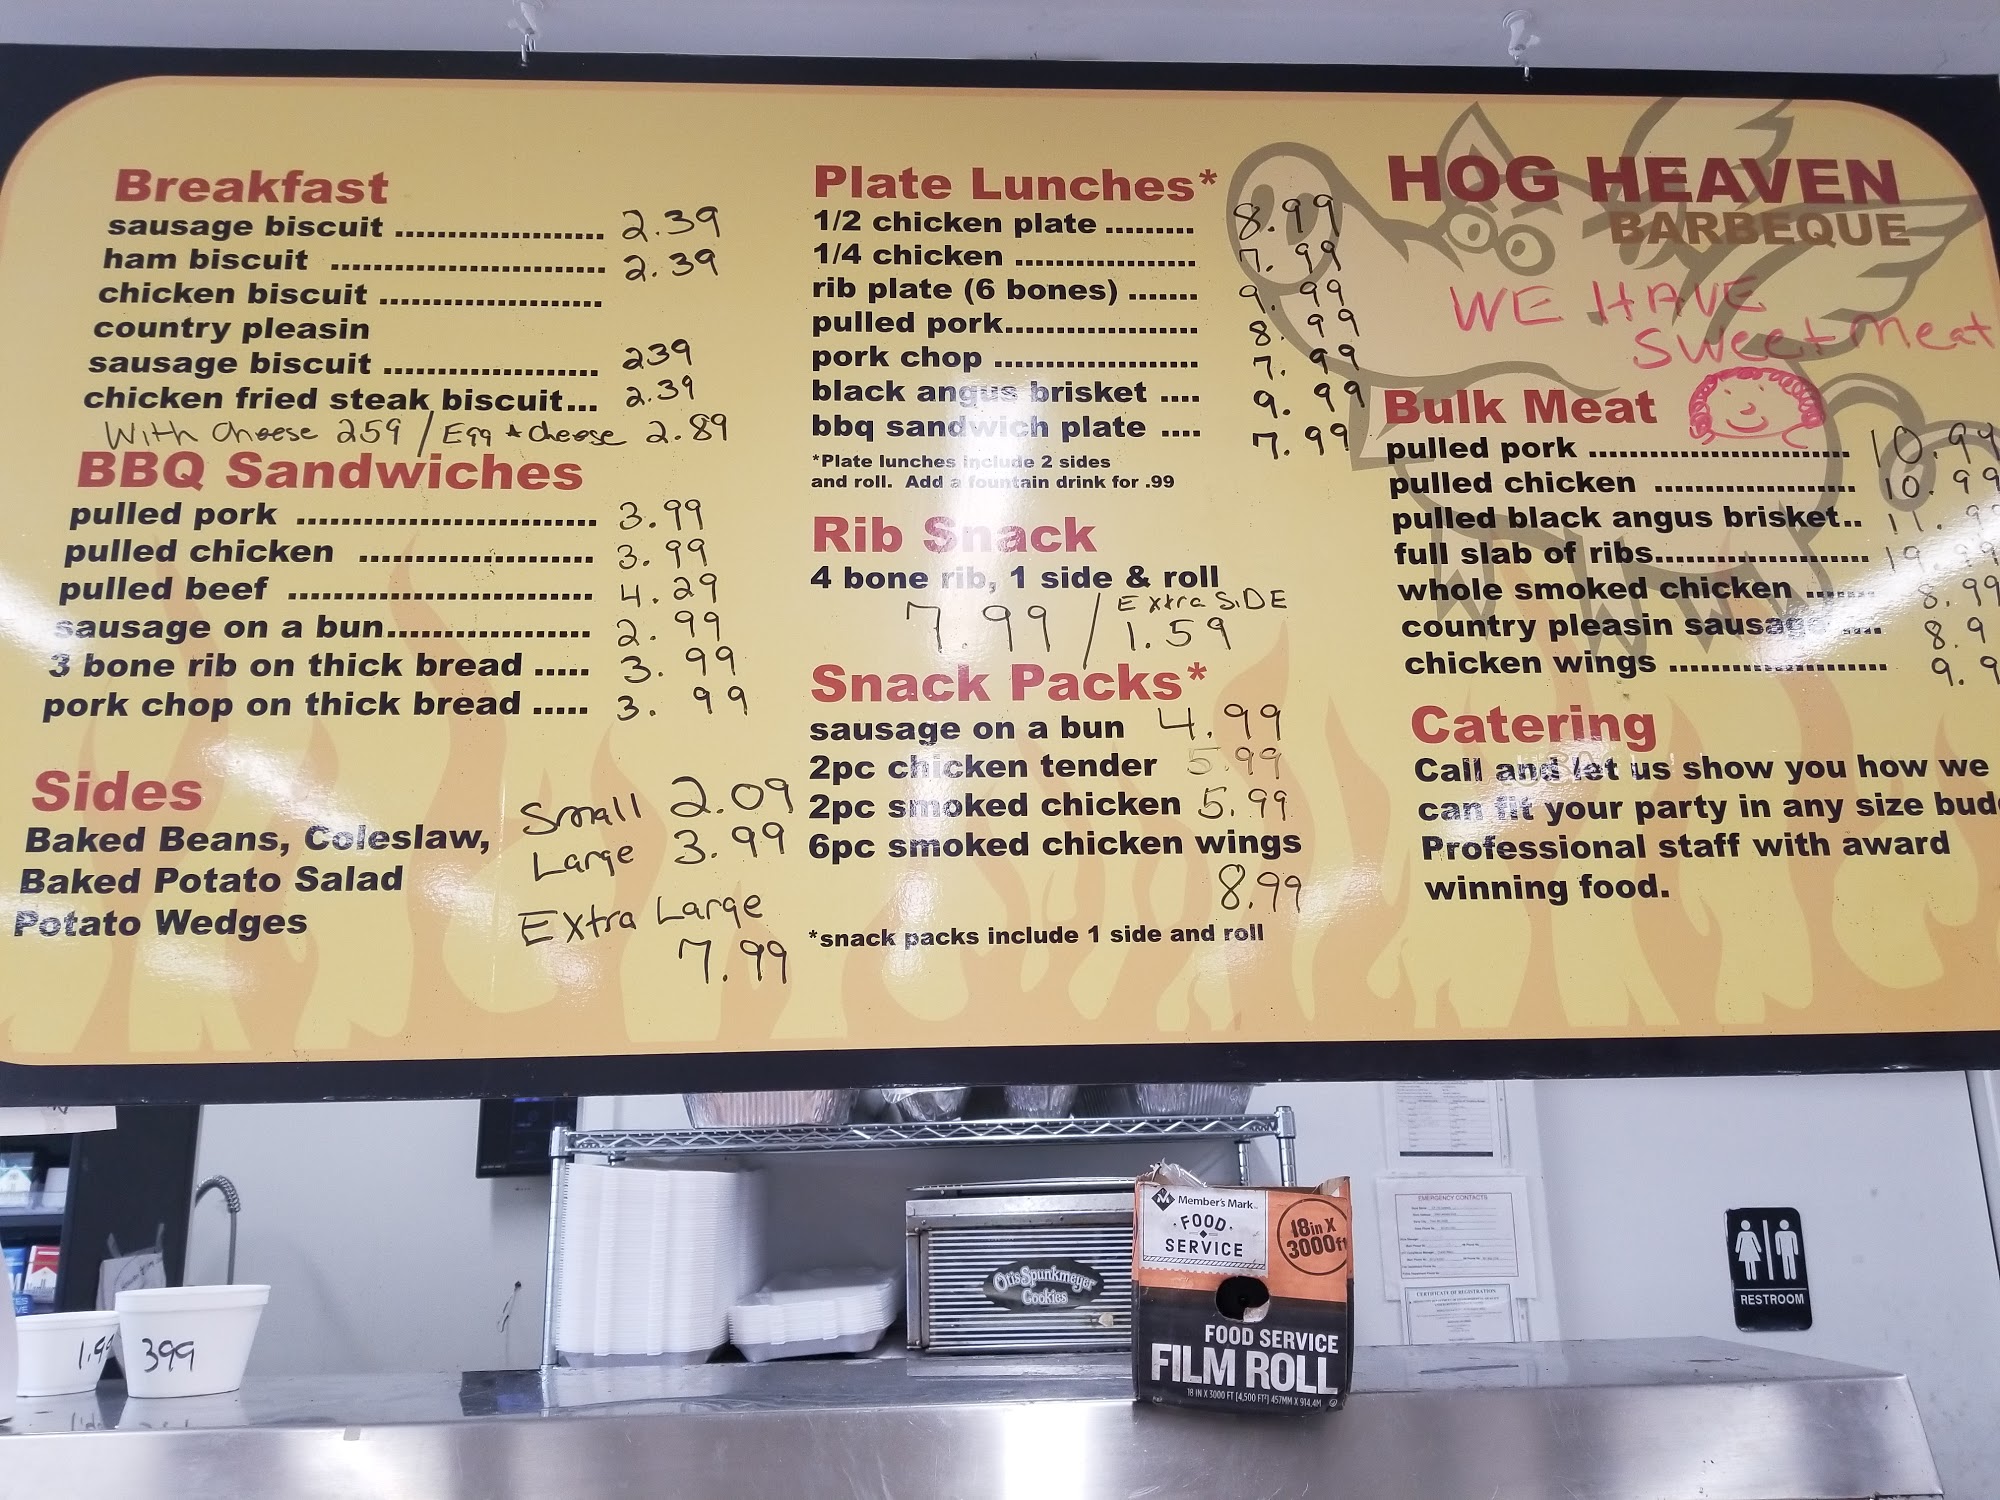 Breakfast
sausage biscuit .................... 2.39
ham biscuit .......................... 2.39
chicken biscuit .....................
country pleasin
sausage biscuit .................... 239
chicken fried steak biscuit... 2.39
With Cheese 259 / Egg + cheese 2.89
BBQ Sandwiches
pulled pork ............................ 3.99
pulled chicken ...................... 3.99
pulled beef ............................. 4.29
sausage on a bun................... 2.99
3 bone rib on thick bread ..... 3.99
pork chop on thick bread ..... 3.99
Sides
Baked Beans, Coleslaw,
Baked Potato Salad
Potato Wedges
Small 2.09
Large 3.99
Extra Large
7.99
Plate Lunches*
1/2 chicken plate ......... 8.99
1/4 chicken .................. 7.99
rib plate (6 bones) ....... 9.99
pulled pork................... 8.99
pork chop .................... 7.99
black angus brisket .... 9.99
bbq sandwich plate .... 7.99
*Plate lunches include 2 sides
and roll. Add a fountain drink for .99
Rib Snack
4 bone rib, 1 side & roll
7.99 / Extra SiDE
1.59
Snack Packs*
sausage on a bun 4.99
2pc chicken tender 5.99
2pc smoked chicken 5.99
6pc smoked chicken wings
8.99
*snack packs include 1 side and roll
HOG HEAVEN
BARBEQUE
WE HAVE
Sweetmeat
Bulk Meat
pulled pork .......................... 10.99
pulled chicken .................... 10.99
pulled black angus brisket.. 11.99
full slab of ribs..................... 19.99
whole smoked chicken ....... 8.99
country pleasin sausage .... 8.9
chicken wings ...................... 9.9
Catering
Call and let us show you how we
can fit your party in any size bud
Professional staff with award
winning food.
1.9
399
Otis Spunkmeyer
Cookies
Member's Mark
FOOD
SERVICE
18in X
3000ft
FOOD SERVICE
FILM ROLL
18 IN X 3000 FT [4,500 FT²] 457MM X 914.4M
EMERGENCY CONTACTS
CERTIFICATE OF REGISTRATION
RESTROOM